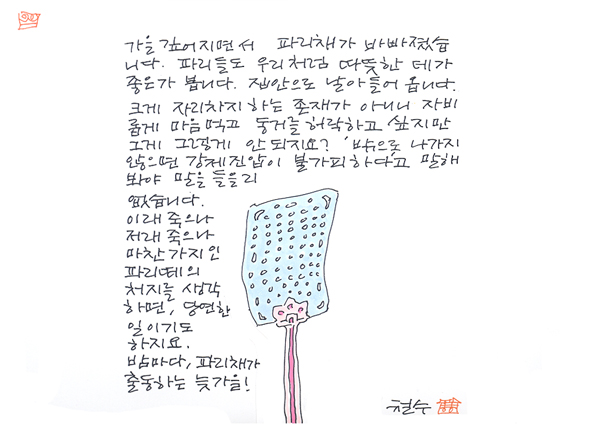 가을 깊어지면서 파리채가 바빠졌습
니다. 파리들도 우리처럼 따뜻한 데가
좋은가 봅니다. 집안으로 날아들어 옵니다.
크게 자리차지 하는 존재가 아니니 자비
롭게 마음먹고 동거를 허락하고 싶지만
그게 그렇게 안 되지요? '밖으로 나가지
않으면 강제진압이 불가피하다'고 말해
봐야 말을 들을리
없습니다.
이래 죽으나
저래 죽으나
마찬가지인
파리떼의
처지를 생각
하면, 당연한
일이기도
하지요.
밤마다, 파리채가
출동하는 늦가을!
철수